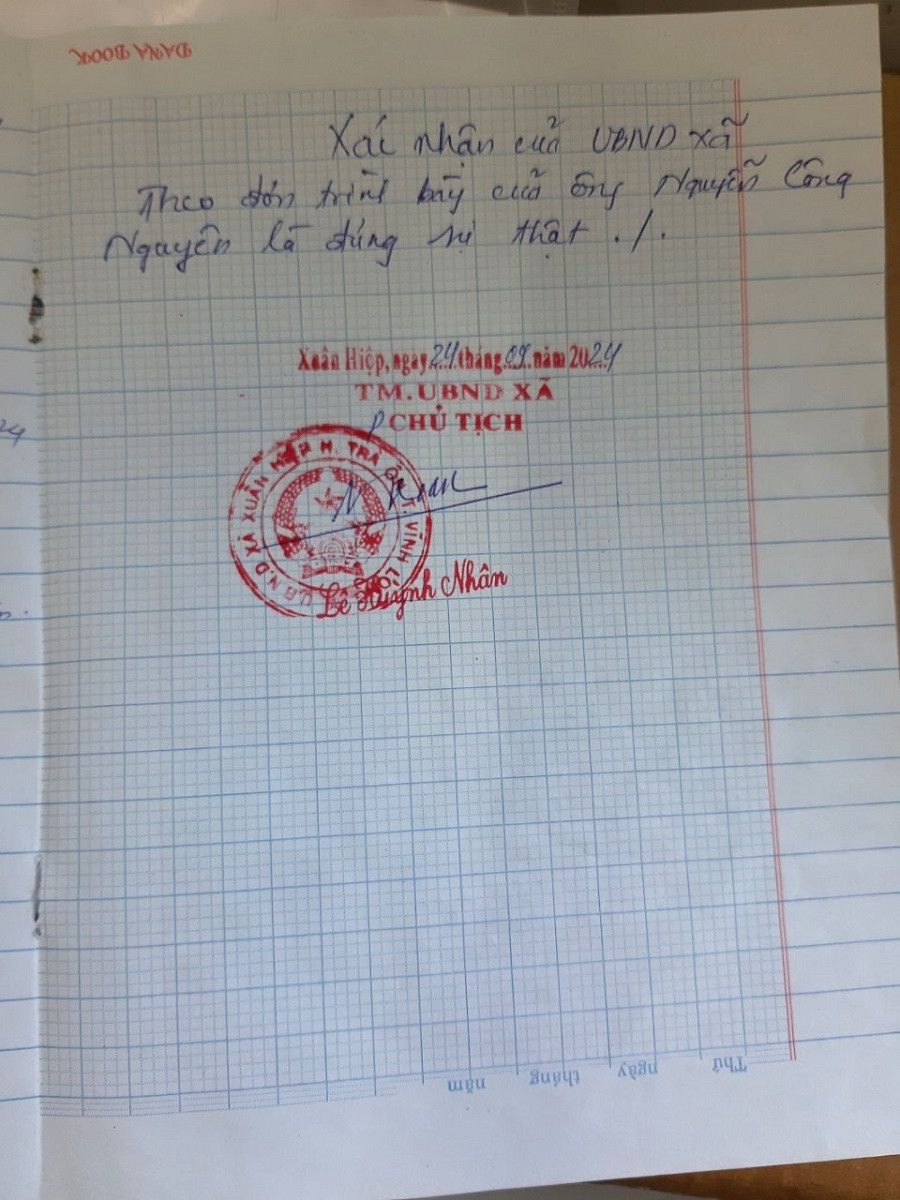 DANA BOOK
Xác nhận của UBND xã
Theo đơn trình bày của ông Nguyễn Công
Nguyên là đúng sự thật ./.
Xuân Hiệp, ngày 24 tháng 09 năm 2024
TM. UBND XÃ
P CHỦ TỊCH
U.B.N.D XÃ XUÂN HIỆP H. TRÀ ÔN T. VĨNH LONG
Nhan
Lê Huỳnh Nhân
Thứ ngày tháng năm